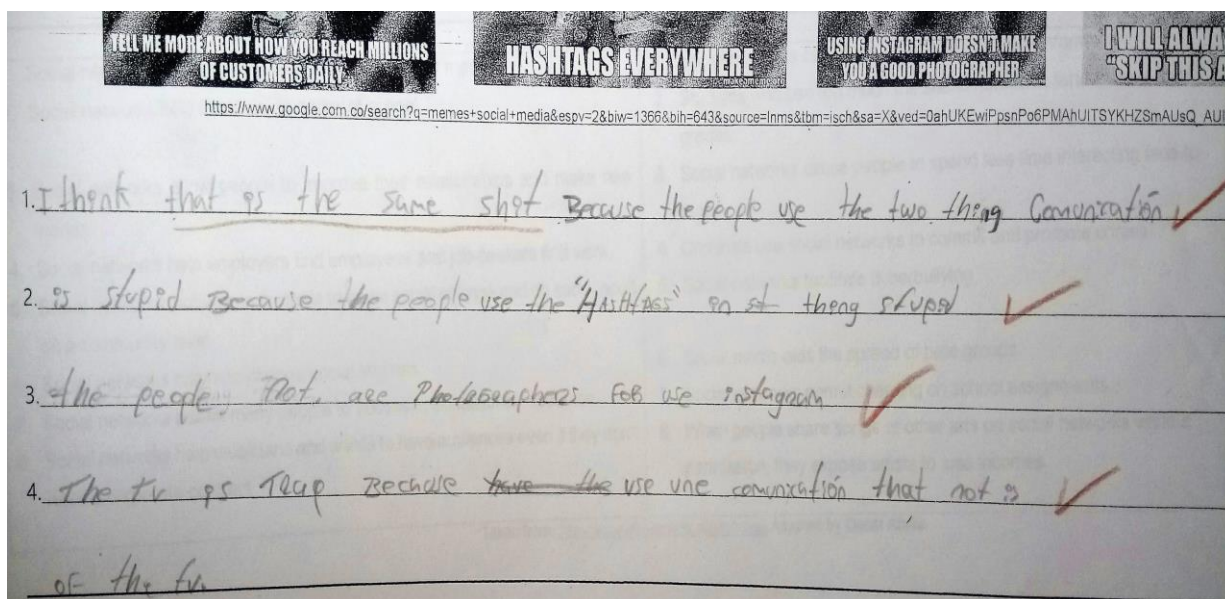 TELL ME MORE ABOUT HOW YOU REACH MILLIONS
OF CUSTOMERS DAILY
HASHTAGS EVERYWHERE
USING INSTAGRAM DOESN'T MAKE
YOU A GOOD PHOTOGRAPHER
I WILL ALWA
"SKIP THIS A
https://www.google.com.co/search?q=memes+social+media&espv=2&biw=1366&bih=643&source=lnms&tbm=isch&sa=X&ved=0ahUKEwiPpsnPo6PMAhUITSYKHZSmAUsQ_AUI
1. I think that is the same shit Because the people use the two thing Comunicatión
2. is stupid Because the people use the "HASHTAGS" in st thing stupid
3. the people, Not, are Photographers FOR use instagram
4. The tv is Trap Because have the use une comunicatión that not is
of the tv.